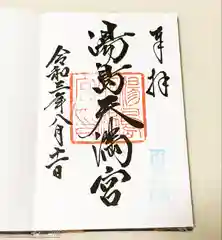 奉拝
湯島天満宮
令和三年八月十二日